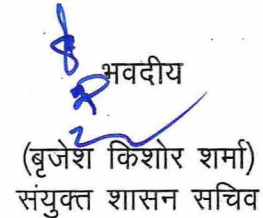 भवदीय
(बृजेश किशोर शर्मा)
संयुक्त शासन सचिव